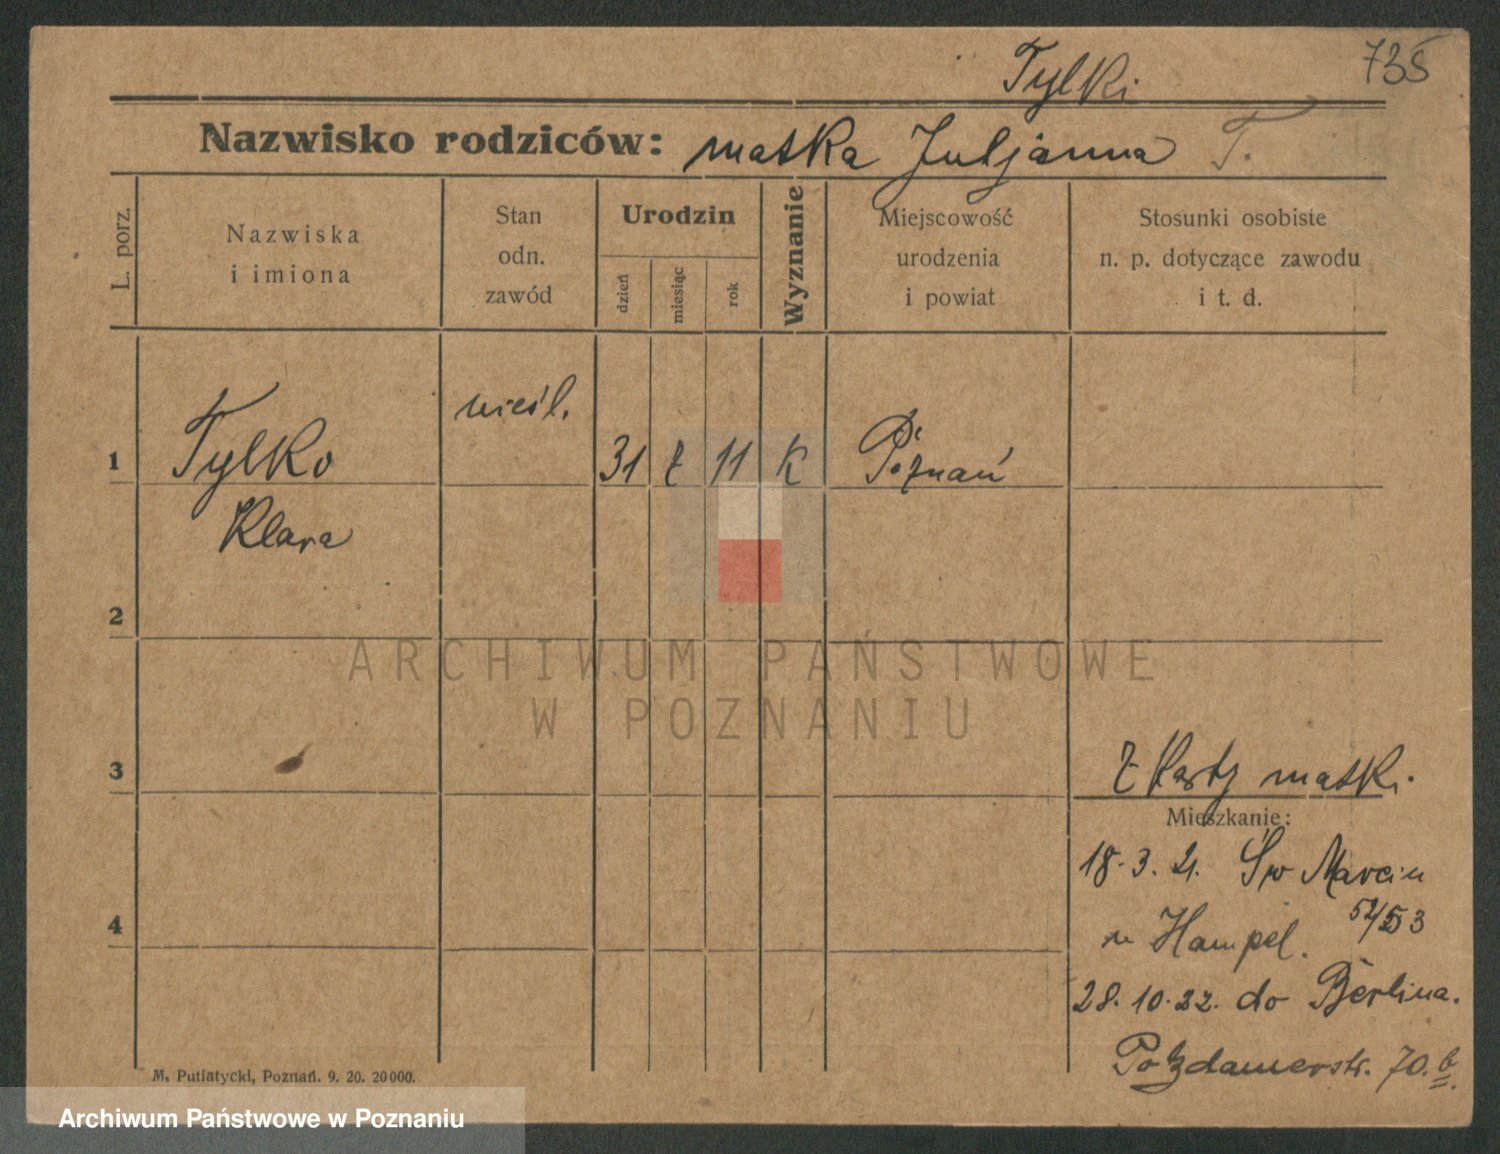 Tylki
735
Nazwisko rodziców: matka Juljanna T.
L. porz.
Nazwiska
i imiona
Stan
odn.
zawód
Urodzin
dzień
miesiąc
rok
Wyznanie
Miejscowość
urodzenia
i powiat
Stosunki osobiste
n. p. dotyczące zawodu
i t. d.
1 Tylko nieśl. 31 11 K Poznań
Klara
2
ARCHIWUM PAŃSTWOWE
W POZNANIU
3
Z karty matki.
Mieszkanie:
18.3.21. Św Marcin
52/53
4
u Hampel.
28.10.22. do Berlina.
Potzdamerstr. 70.b.
M. Putiatycki, Poznań. 9. 20. 20000.
Archiwum Państwowe w Poznaniu